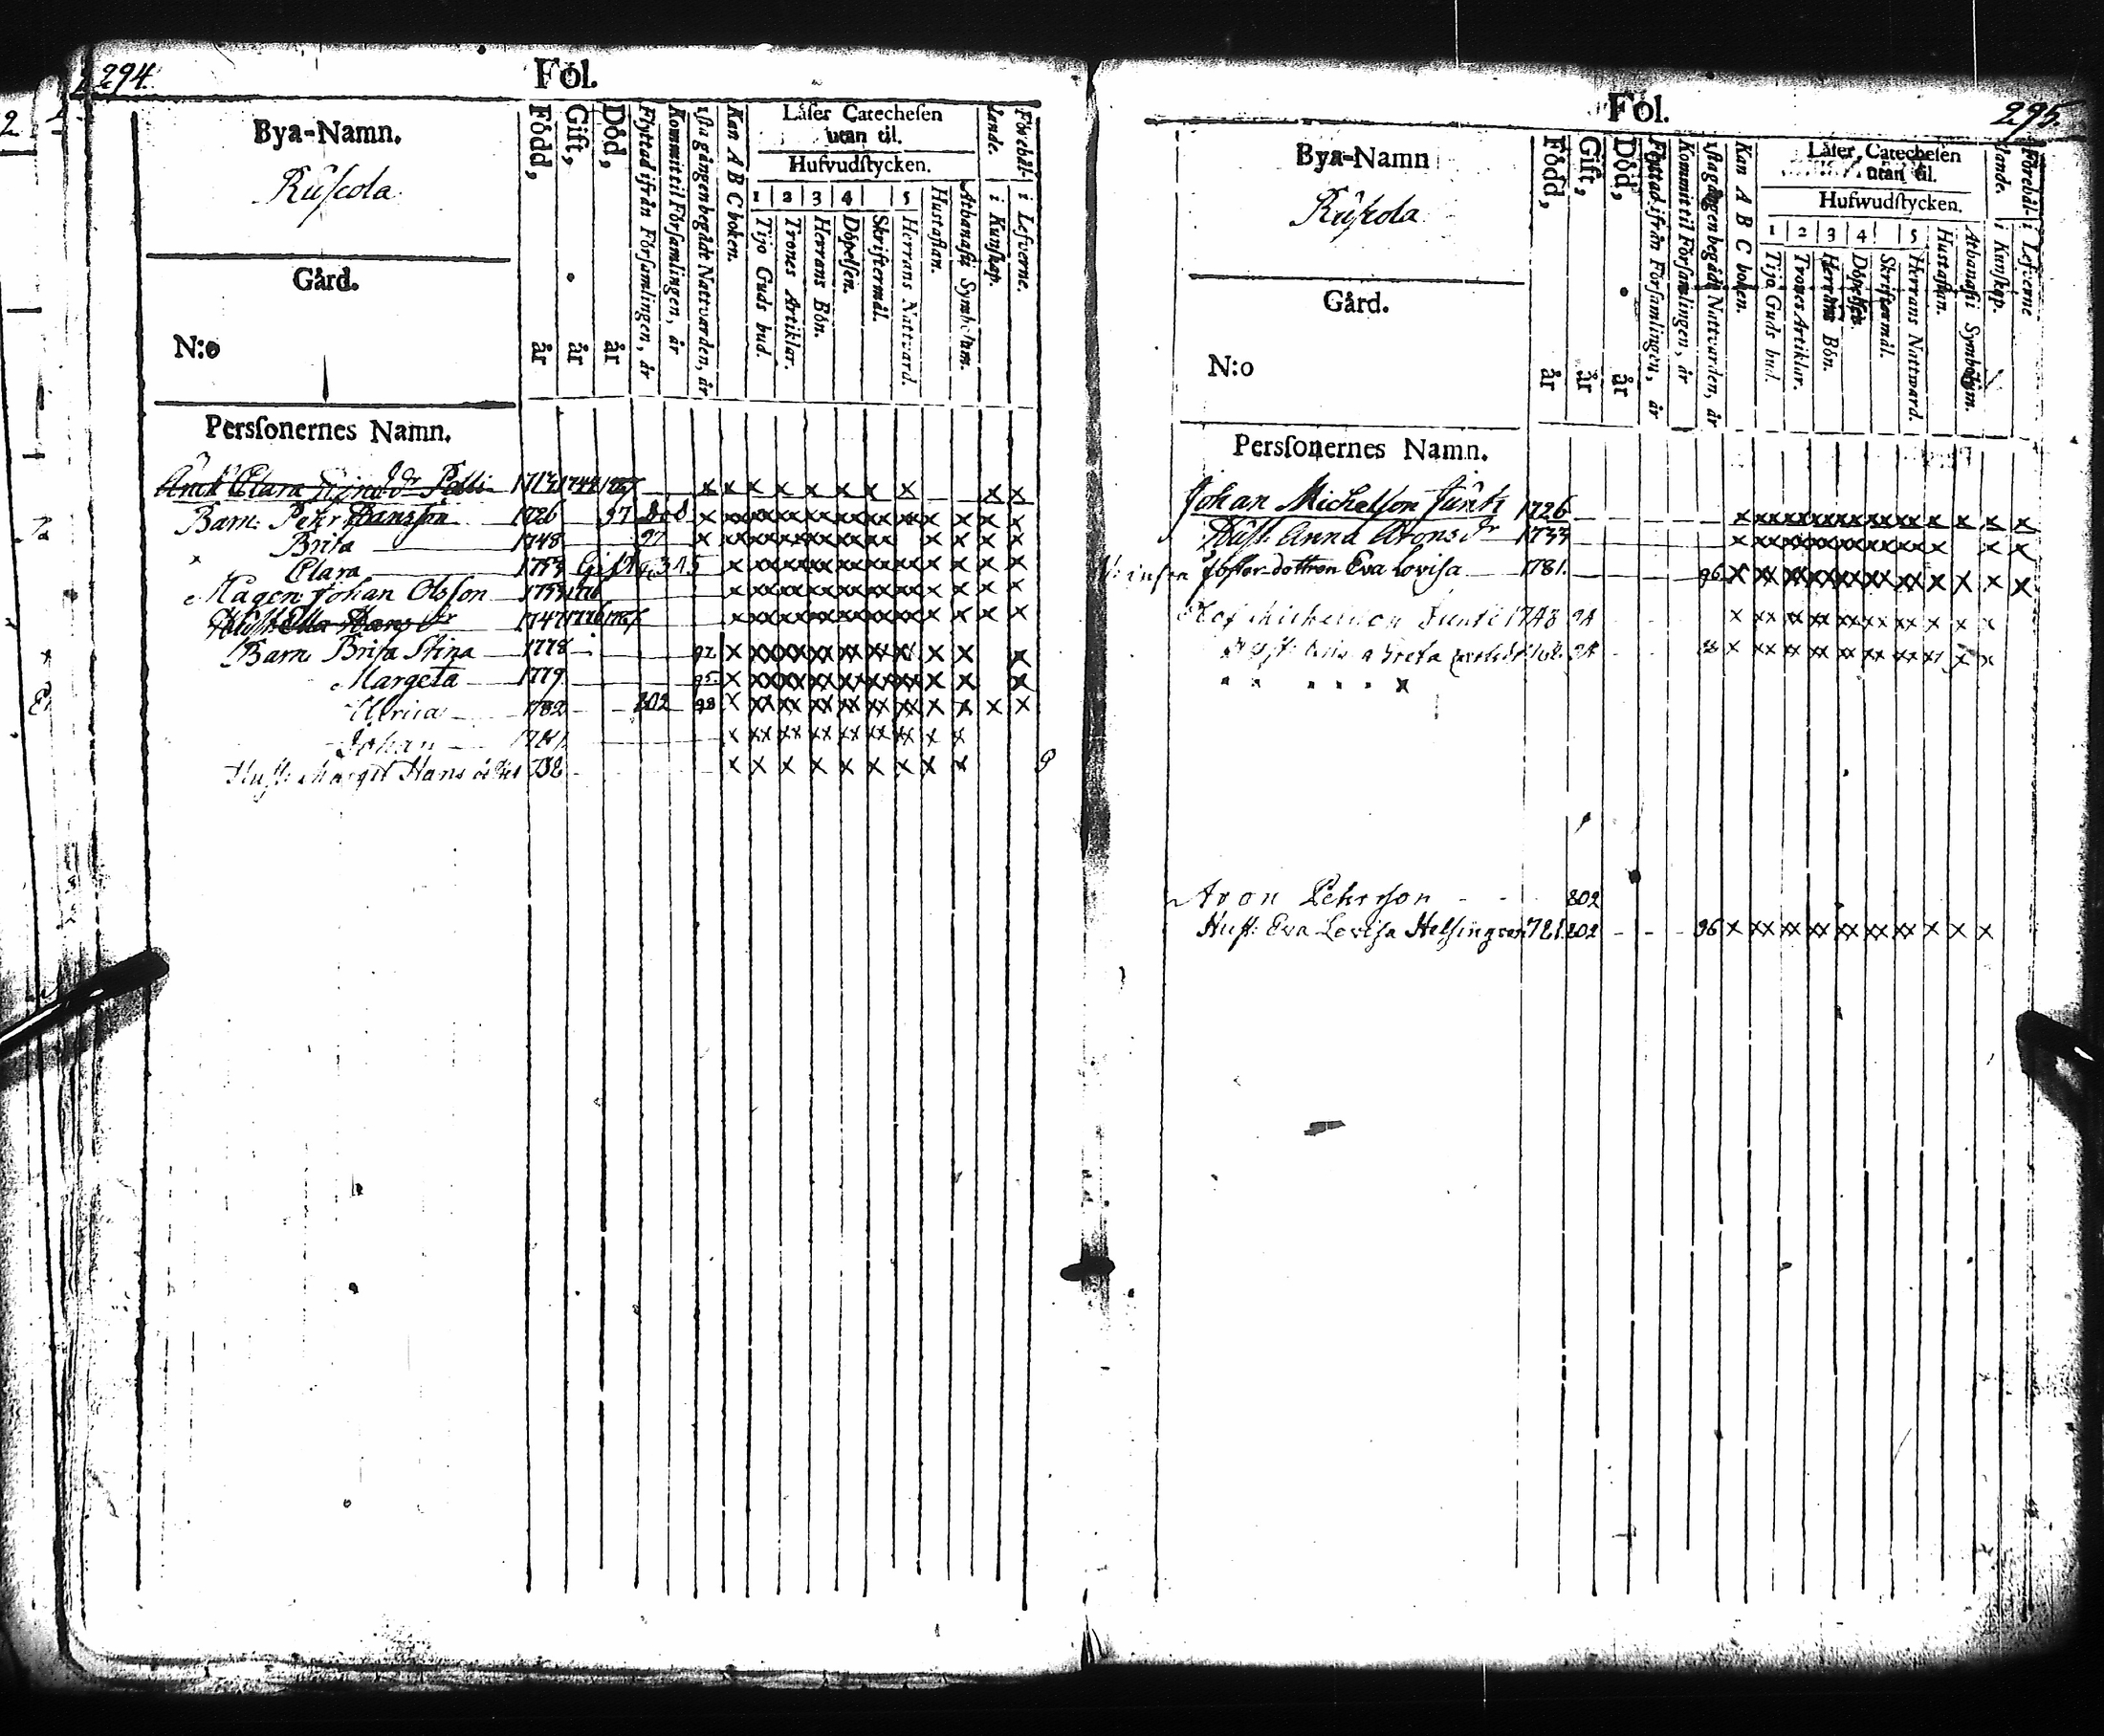 294.
Fol.
Bya-Namn.
Rúscola
Gård.
N:o
Född, år
Gift, år
Död, år
Flyttad ifrån Församlingen, år
Kommit til Församlingen, år
1sta gången begådt Nattvarden, år
Kan A B C boken.
Läser Catechesen
utan til.
Hufvudstycken.
1 2 3 4 5
Tijo Guds bud.
Trones Artiklar.
Herrans Bön.
Döpelsen.
Skriftermål.
Herrans Nattvard.
Hustaflan.
Athanasii Symbolum.
Förehållande.
i Kunskap.
i Lefverne.
Personernes Namn.
Enck Clara 1744 1787 x x x x x x x x x x
Barn: Pehr Hansson 1726 97 död x x xx xx xx xx xx xx x x x x
Brita 1748 97 x x xx xx xx xx xx xx x x x x
Clara Gift x xx xx xx xx xx xx x x x x
Magen Johan Olsson x xx xx xx xx xx xx x x x x
1747 1776 1787 x xx xx xx xx xx xx x x x x
Barn Brita Stina 1778 92 x xx xx xx xx xx xx x x x
Margeta 1779 95 x xx xx xx xx xx xx x x x
Ulrica 1782 802 98 x xx xx xx xx xx xx x x x x
Johan x xx xx xx xx xx xx x x
Hust: Margit Hans x x x x x x x x x
295
Fol.
Bya-Namn
Rúscola
Gård.
N:o
Född, år
Gift, år
Död, år
Flyttad ifrån Församlingen, år
Kommit til Församlingen, år
1sta gången begådt Nattvarden, år
Kan A B C boken.
Läser Catechesen
utan til.
Hufwudstycken.
1 2 3 4 5
Tijo Guds bud.
Trones Artiklar.
Herrans Bön.
Döpelsen.
Skriftermål.
Herrans Nattvard.
Hustaflan.
Athanasii Symbolum.
Förehållande.
i Kunskap.
i Lefverne
Personernes Namn.
Johan Michelson Juntti 1726 x xx xx xx xx xx xx x x x x
Hust. Anna Aronsdr 1733 x xx xx xx xx xx xx x x x
foster dottren Eva Lovisa 1781. 96 x xx xx xx xx xx xx x x x x
Olof Michelsson Juntti 1743 94 x xx xx xx xx xx xx x x x
Hust: Greta 94 x xx xx xx xx xx xx x x
Aron Pehrsson 802
Hust: Eva Lovisa Helsingren 781 802 96 x xx xx xx xx xx xx x x x